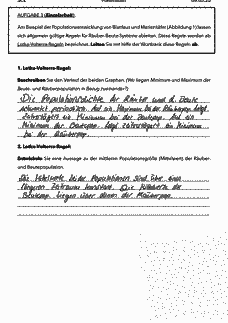 AUFGABE 3 (Einzelarbeit).
Am Beispiel der Populationsentwicklung von Blattlaus und Marienkäfer (Abbildung 1) lassen
sich allgemein gültige Regeln für Räuber-Beute-Systeme ableiten. Diese Regeln werden als
Lotka-Volterra-Regeln bezeichnet. Leiten Sie mit Hilfe der Materialien diese Regeln ab.
1. Lotka-Volterra-Regel:
Beschreiben Sie den Verlauf der beiden Graphen. (Wo liegen Minimum und Maximum der
Beute- und Räuberpopulation in Bezug zueinander?)
Die Populationsdichte der Räuber und d. Beute
schwankt periodisch. Auf ein Maximum der Räuberpop. folgt
zeitverzögert ein Minimum bei der Beutepop. Auf ein
Minimum der Beutepop. folgt zeitverzögert ein Minimum
bei der Räuberpop.
2. Lotka-Volterra-Regel:
Entwickeln Sie eine Aussage zu der mittleren Populationsgröße (Mittelwert) der Räuber-
und Beutepopulation.
Die Mittelwerte bei der Populationen sind über einen
längeren Zeitraum konstant. Die Mittelwerte der
Beutepop. liegen über denen der Räuberpop.